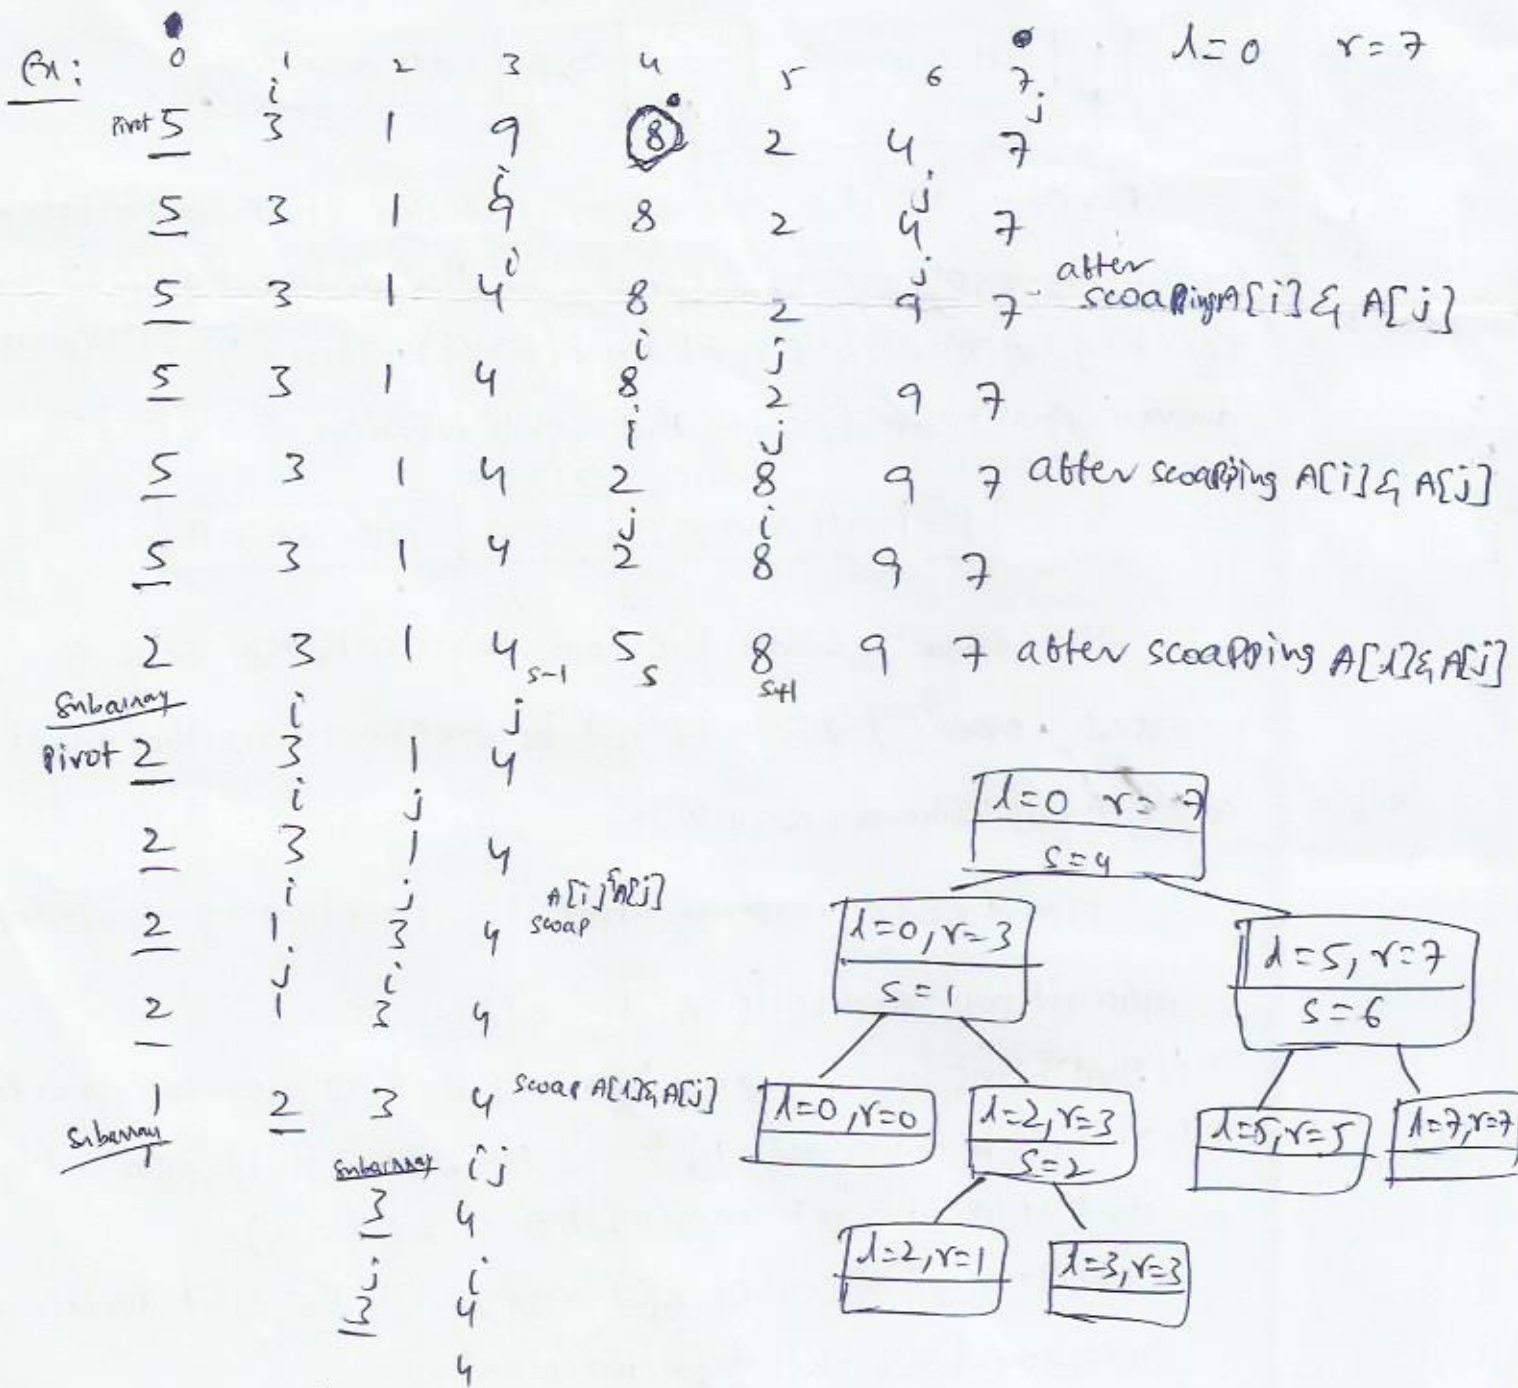 Ex: 0 1 2 3 4 5 6 7 l=0 r=7
i j
Pivot 5 3 1 9 8 2 4 7
i j
5 3 1 9 8 2 4 7
i j
5 3 1 4 8 2 9 7 after scoapping A[i] & A[j]
i j
5 3 1 4 8 2 9 7
i j
5 3 1 4 2 8 9 7 after scoapping A[i] & A[j]
j i
5 3 1 4 2 8 9 7
2 3 1 4 s-1 5 s 8 s+1 9 7 after scoapping A[l] & A[j]
Subarray i j
Pivot 2 3 1 4
i j
2 3 1 4
i j A[i] & A[j]
2 1 3 4 swoap
j i
2 1 3 4
1 2 3 4 swoap A[l] & A[j]
Subarray
1
Subarray i j
3 4
j i
3 4
4
l=0 r=7
s=4
l=0, r=3
s=1
l=5, r=7
s=6
l=0, r=0
l=2, r=3
s=2
l=5, r=5
l=7, r=7
l=2, r=1
l=3, r=3